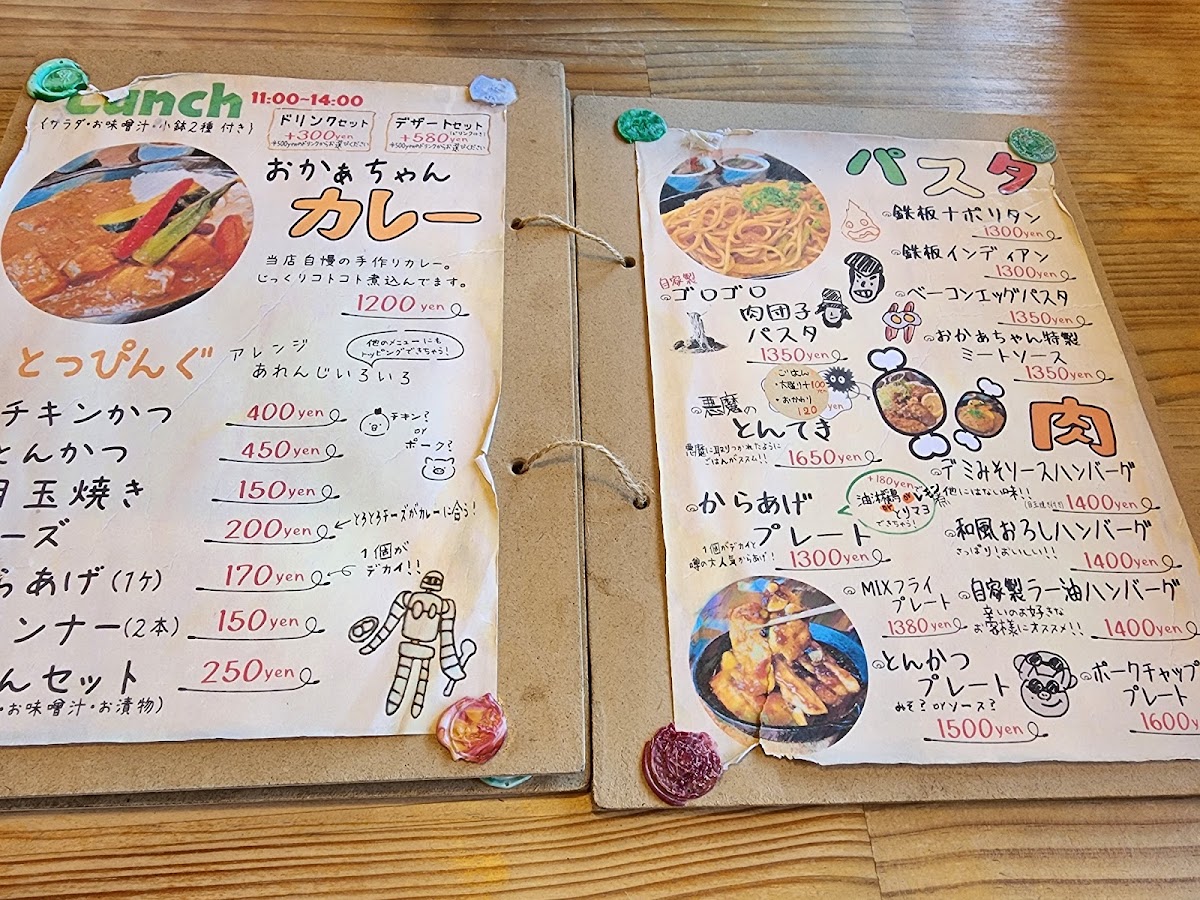 Lunch 11:00~14:00
(サラダ・お味噌汁・小鉢2種 付き)
ドリンクセット
+300yen
+500yenのドリンクからお選びください
デザートセット
+580yen
+500yenのドリンクからお選びください
おかぁちゃん
カレー
当店自慢の手作りカレー。
じっくりコトコト煮込んでます。
1200 yen
とっぴんぐ
アレンジ
あれんじいろいろ
他のメニューにも
トッピングできちゃう!
チキンかつ 400yen
チキン?
or
ポーク?
とんかつ 450yen
目玉焼き 150yen
ーズ 200yen
とろとろチーズがカレーに合う!
らあげ(1ケ) 170yen
1個が
デカイ!!
ンナー(2本) 150yen
んセット 250yen
・お味噌汁・お漬物)
パスタ
鉄板ナポリタン
1300yen
鉄板インディアン
1300yen
ベーコンエッグパスタ
1350yen
おかぁちゃん特製
ミートソース
1350yen
自家製
ゴロゴロ
肉団子
パスタ
1350yen
ごはん
・大盛り+100yen
・おかわり
120yen
肉
悪魔の
とんてき
悪魔に取りつかれたように
ごはんがススム!!
1650yen
からあげ
プレート
1個がデカイと
噂の大人気からあげ!
1300yen
+180yenで
油淋鶏
or
とりマヨ
できちゃう!
デミみそソースハンバーグ
他にはない味!!
1400yen
和風おろしハンバーグ
さっぱり!おいしい!!
1400yen
MIXフライ
プレート
1380yen
自家製ラー油ハンバーグ
辛いのお好きな
お客様にオススメ!!
1400yen
とんかつ
プレート
みそ?orソース?
1500yen
ポークチャップ
プレート
1600y